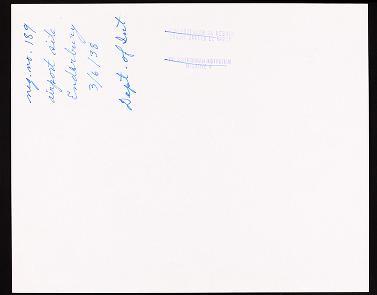 neg. no. 189
airport site
Enderbury
3/6/38
Dept. of Int